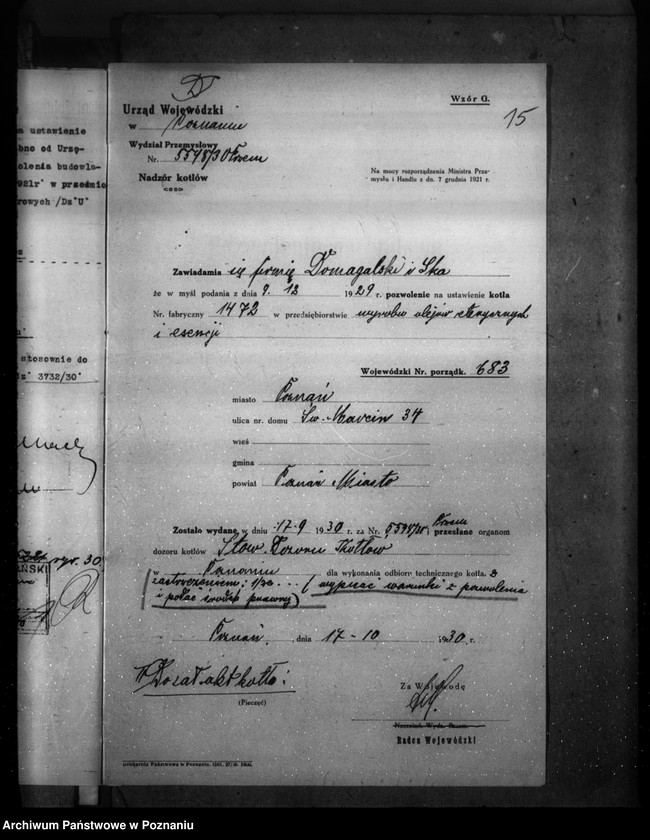 m ustawienie
bno od Urzę-
olenia budowla-
921r" w przedmio
rowych /Dz"U"
stosownie do
z" 3732/30"
ryr. 30
AŃSKI
Wzór G.
15
Urząd Wojewódzki
w Poznaniu
Wydział Przemysłowy
Nr. 5548/30 Przem
Nadzór kotłów
Na mocy rozporządzenia Ministra Prze-
mysłu i Handlu z dn. 7 grudnia 1921 r.
Zawiadamia się firmę Domagalski i Ska
że w myśl podania z dnia 9. 12 1929 r. pozwolenie na ustawienie kotła
Nr. fabryczny 1472 w przedsiębiorstwie wyrobu olejów eterycznych
i esencji
Wojewódzki Nr. porządk. 683
miasto Poznań
ulica nr. domu Św. Marcin 34
wieś
gmina
powiat Poznań Miasto
Zostało wydane w dniu 17-9 1930 r. za Nr. 5548/30 Przem i przesłane organom
dozoru kotłów Stow. Dozoru Kotłów
w Poznaniu dla wykonania odbioru technicznego kotła. z
zastrzeżeniem: (wypisać warunki z pozwolenia
i podać środek prawny)
Poznań, dnia 17-10 1930 r.
(Pieczęć)
Za Wojewodę
Naczelnik Wydz. Przem.
Radca Wojewódzki
Drukarnia Państwowa w Poznaniu.
Archiwum Państwowe w Poznaniu